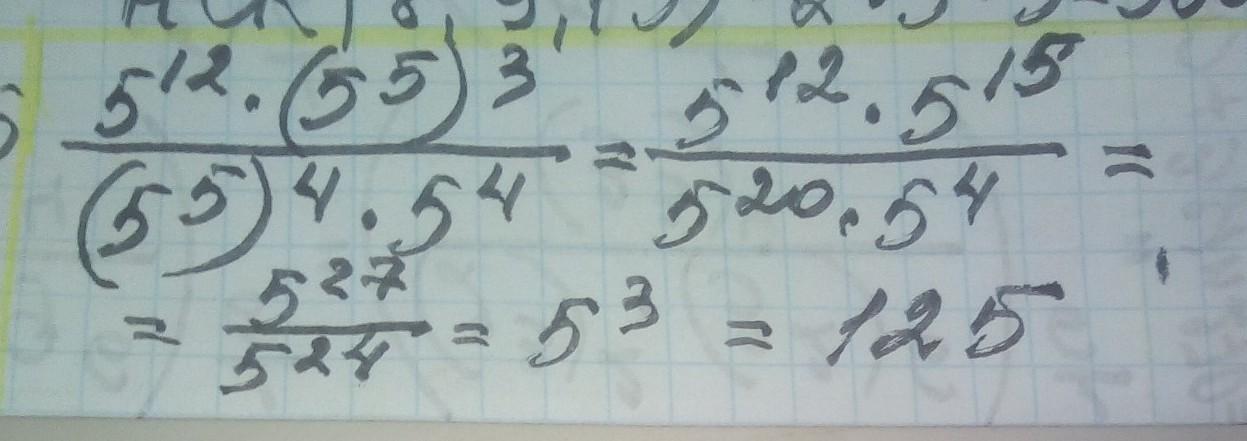 5^12 · (5^5)^3 / (5^5)^4 · 5^4 = 5^12 · 5^15 / 5^20 · 5^4 =
= 5^27 / 5^24 = 5^3 = 125